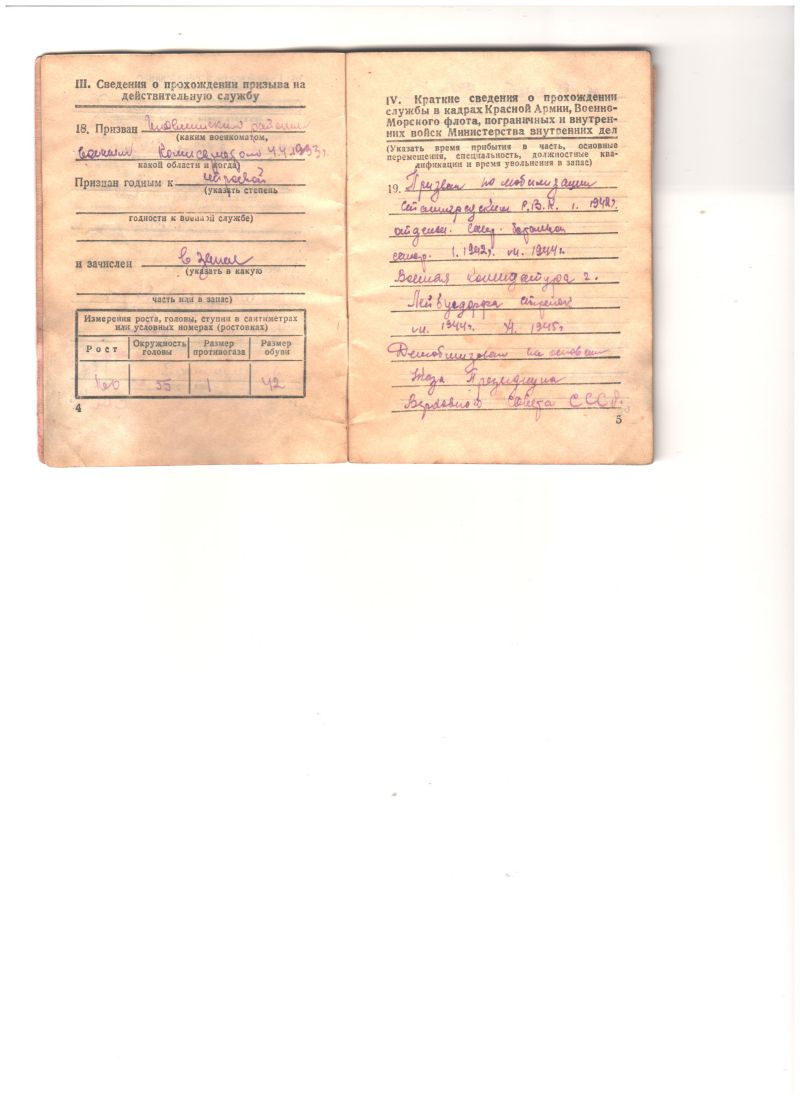 III. Сведения о прохождении призыва на
действительную службу
18. Призван
(каким военкоматом,
какой области и когда)
Признан годным к строевой
(указать степень
годности к военной службе)
и зачислен в запас
(указать в какую
часть или в запас)
Измерения роста, головы, ступни в сантиметрах
или условных номерах (ростовках)
Рост Окружность головы Размер противогаза Размер обуви
55 1 42
4
IV. Краткие сведения о прохождении
службы в кадрах Красной Армии, Военно-
Морского флота, пограничных и внутрен-
них войск Министерства внутренних дел
(Указать время прибытия в часть, основные
перемещения, специальность, должностные ква-
лификации и время увольнения в запас)
19. Призван по мобилизации
Р.В.К. I. 1942г.
I. 1942г. VII. 1944г.
Военная комендатура г.
стрелок
VII. 1944г. XI. 1945г.
Демобилизован на основан
Президиума
Верховного Совета СССР.
5